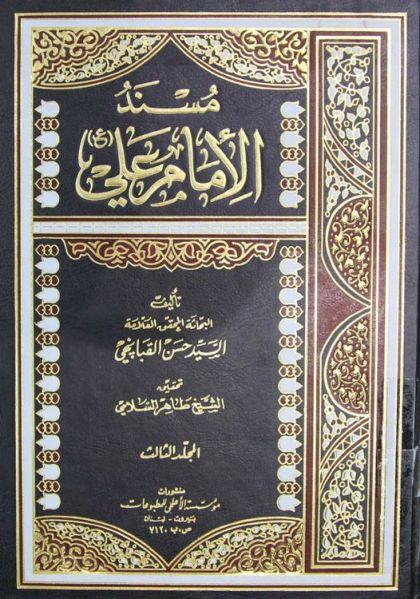 مُسْنَدُ
الإمَام عَلي (ع)
تأليف
البحاثة المحقق العلامة
السيد حسن القبانجي
تحقيق
الشيخ طاهر السلامي
المجلد الثالث
منشورات
مؤسسة الأعلمي للمطبوعات
بيروت - لبنان
ص.ب ٧١٢٠